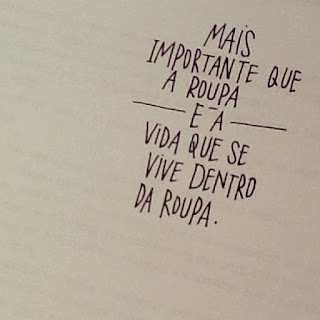 MAIS
IMPORTANTE QUE
A ROUPA
É A
VIDA QUE SE
VIVE DENTRO
DA ROUPA.